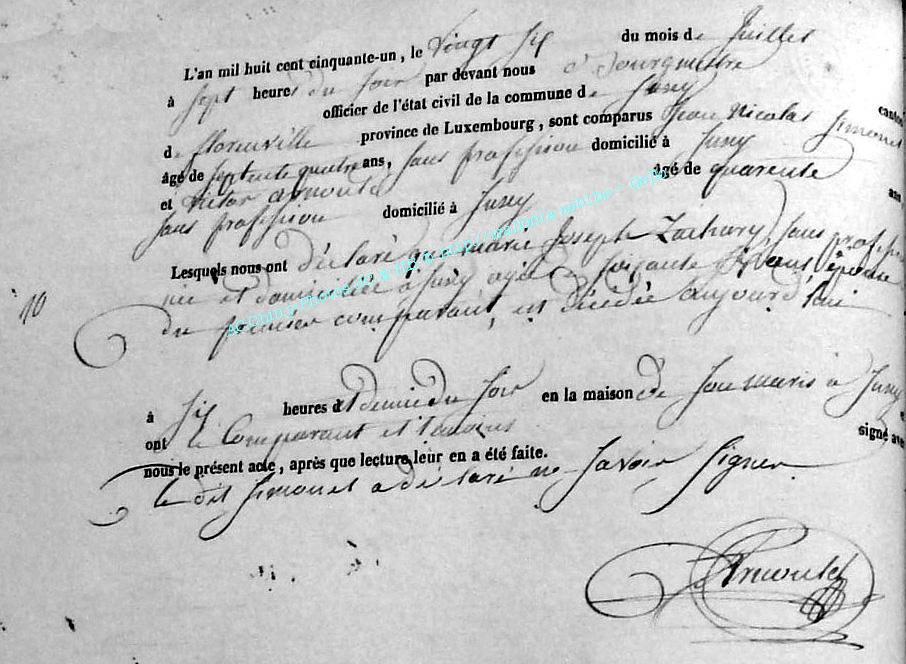 L'an mil huit cent cinquante-un, le Vingt six du mois de Juillet
à Sept heures du soir par devant nous Bourgmestre
officier de l'état civil de la commune de Suxy canton
de florenville province de Luxembourg, sont comparus Jean Nicolas Simonet
âgé de septente quatre ans, sans profession domicilié à Suxy
et Victor arnould âgé de quarente ans
sans profession domicilié à Suxy
Lesquels nous ont déclaré que marie Joseph Zachary, sans profession
née et domiciliée à Suxy, agée de soixante ans, épouse
10
du premier comparant, est décédée aujourd'hui
à six heures et demie du soir en la maison de son maris à Suxy
ont le Comparant et témoins signé avec
nous le présent acte, après que lecture leur en a été faite.
le dit Simonet a déclaré ne savoir signer
Arnould